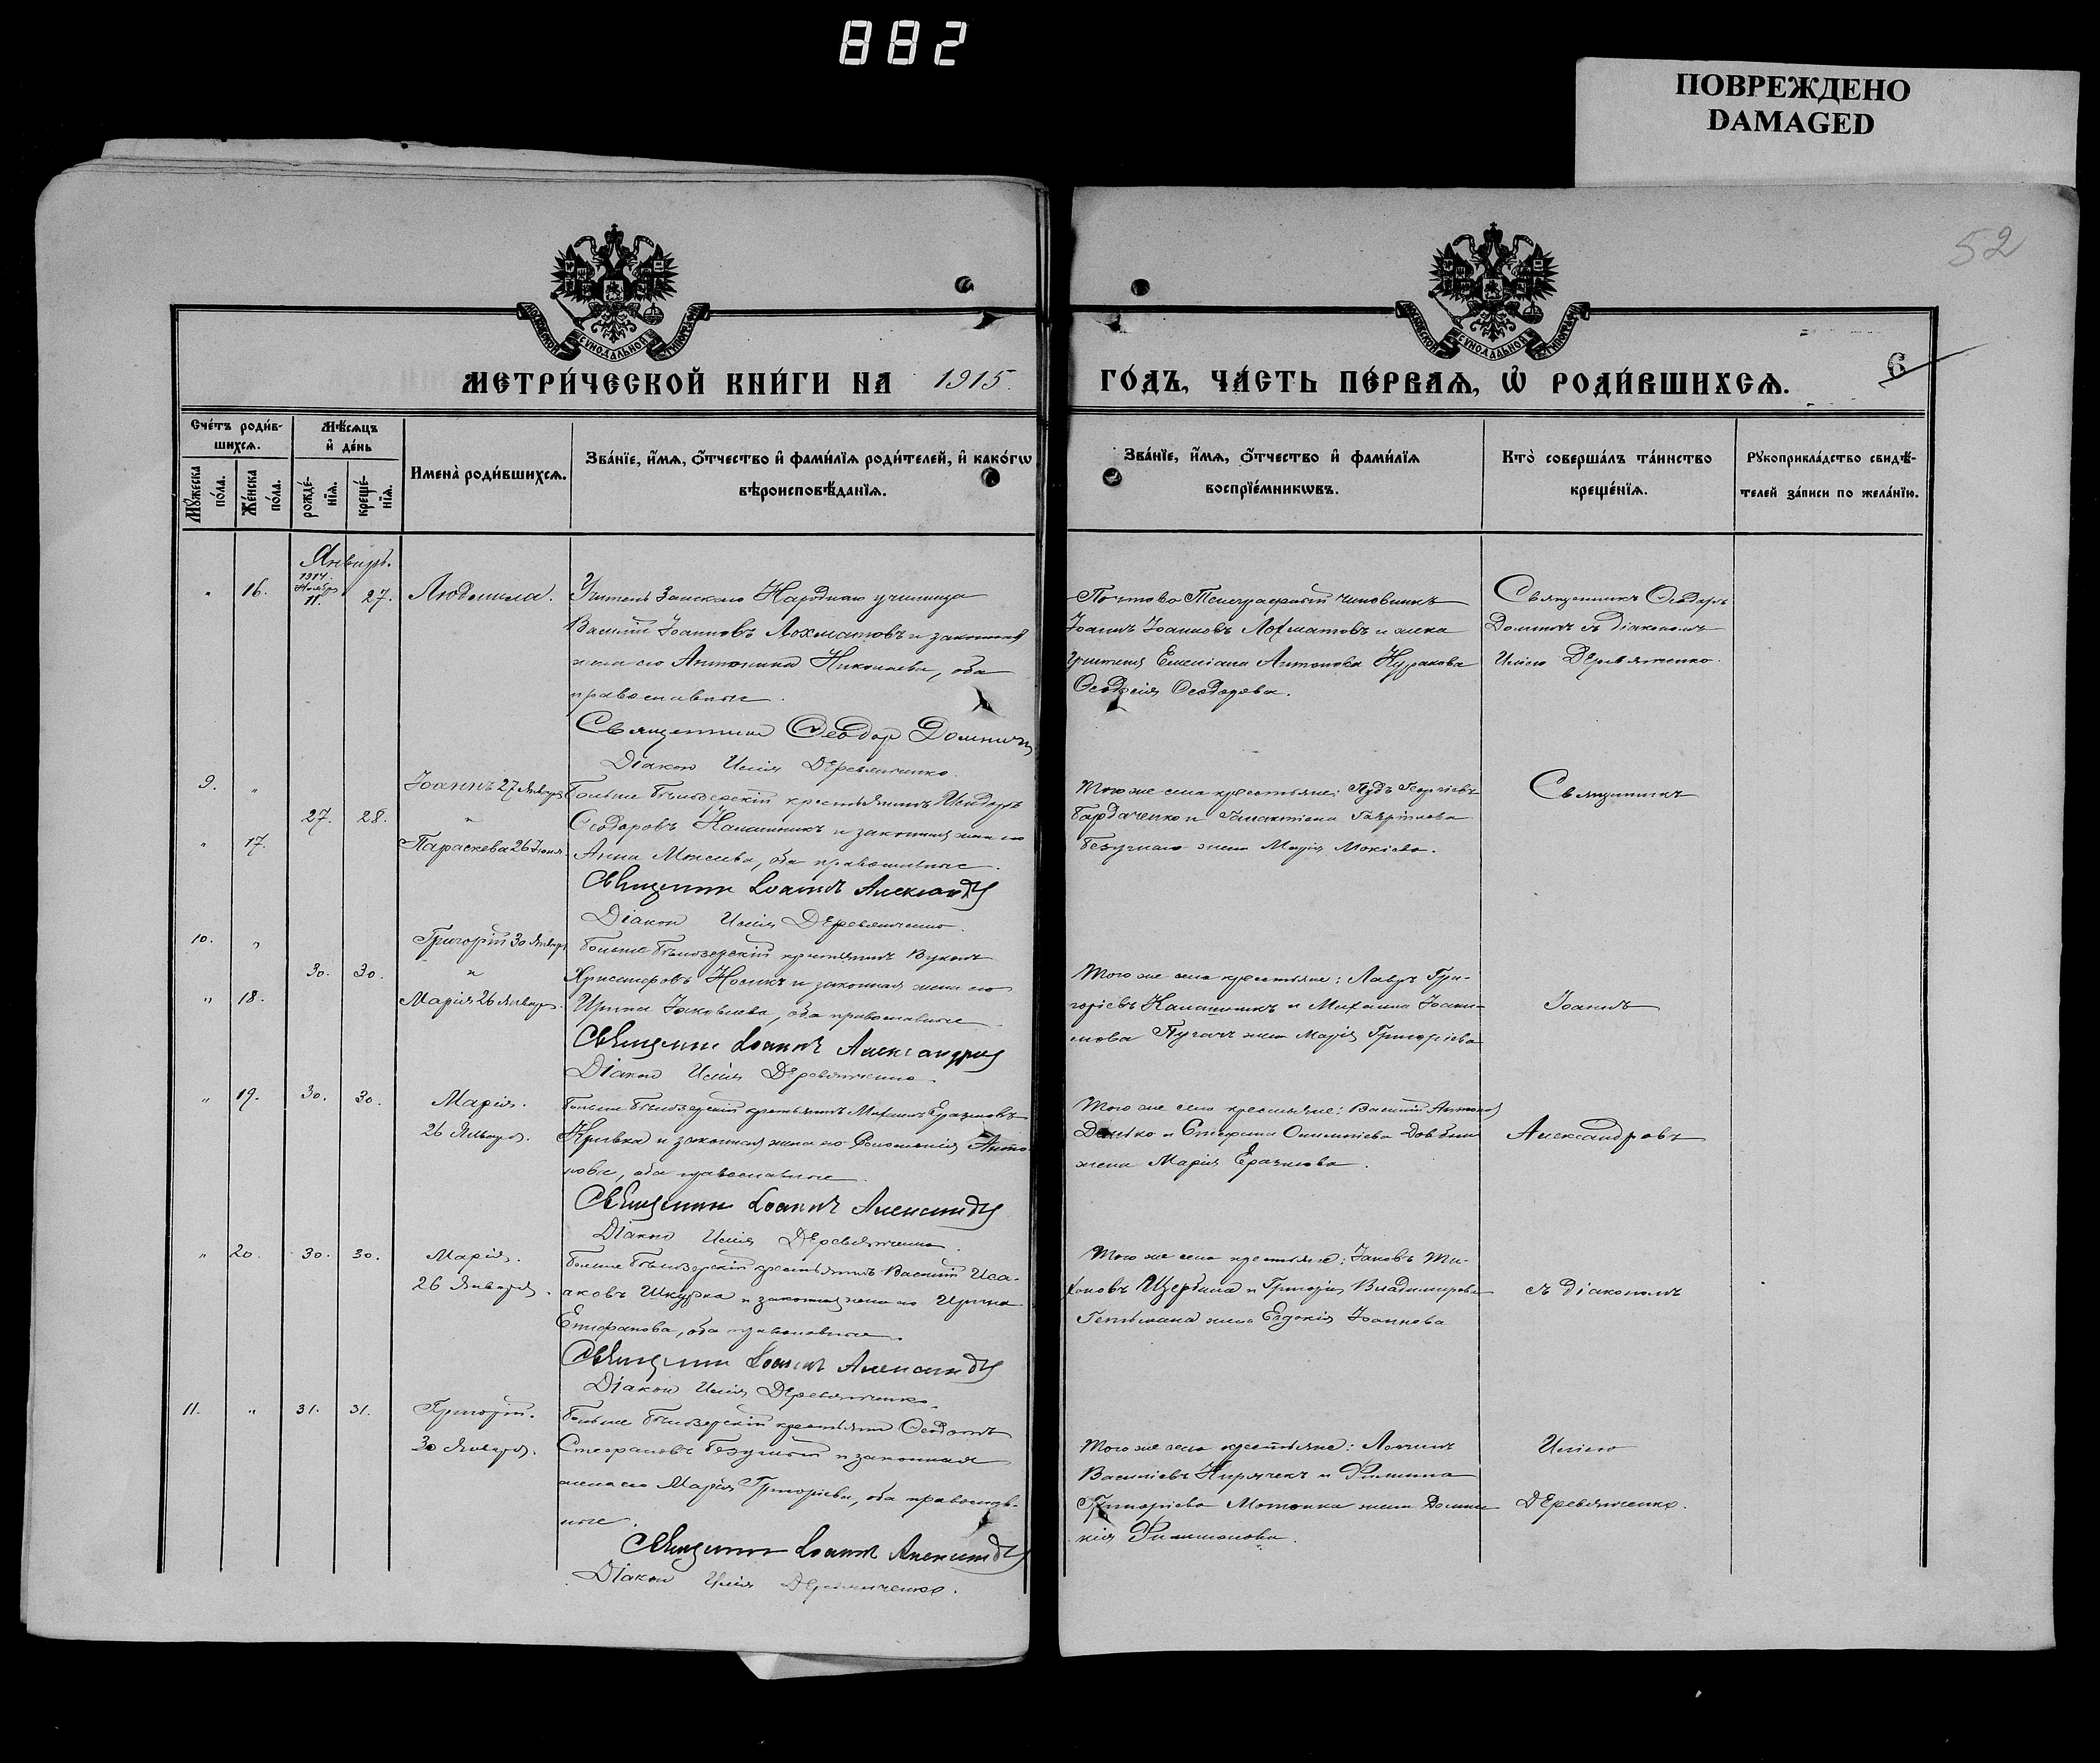 882
ПОВРЕЖДЕНО
DAMAGED
52
МОСКОВСКОЙ СѴНОДАЛЬНОЙ ТИПОГРАФІИ
МОСКОВСКОЙ СѴНОДАЛЬНОЙ ТИПОГРАФІИ
МЕТРИ́ЧЕСКОЙ КНИ́ГИ НА 1915.
ГО́ДЪ, ЧА́СТЬ ПЕ́РВАѦ, Ѡ РОДИ́ВШИХСѦ.
6
Сче́тъ роди́в-
шихсѧ.
Мꙋ́жеска по́ла.
Же́нска по́ла.
Мѣ́сѧцъ
и҆ де́нь
рожде́-
нїѧ.
креще́-
нїѧ.
Имена̀ роди́вшихсѧ.
Зва́нїе, и҆́мѧ, ѻ҆́тчество и҆ фами́лїѧ роди́телей, и҆ како́гѡ
вѣроисповѣ́данїѧ.
Зва́нїе, и҆́мѧ, ѻ҆́тчество и҆ фами́лїѧ
воспрїе́мникѡвъ.
Кто̀ соверша́лъ та́инство
креще́нїѧ.
Рꙋкоприкла́дство свидѣ́-
телей за́писи по жела́нїю.
Январь.
" 16. 1914. Ноября 11. 27. Людмила.
Учитель Земскаго Народнаго училища
Василій Іоанновъ Лохматовъ и законная
жена его Антонина Николаева, оба
православные.
Священникъ Ѳеодор Домнич
Діакон Илія Деревянченко.
Почтово Телеграфный чиновникъ
Іоаннъ Іоанновъ Лохматовъ и жена
учителя Емеліана Антонова Куракова
Ѳеодосія Ѳеодорова.
Священникъ Ѳеодоръ
Домничъ съ діакономъ
Иліею Деревянченко.
9. " Іоаннъ 27 Января
27. 28. и
" 17. Параскева 26 Іюля.
Больше Бѣлозерскій крестьянинъ Исидоръ
Ѳеодоровъ Калашникъ и законная жена его
Анна Моисеева, оба православные.
Священник Іоаннъ Александров
Діакон Илія Деревянченко.
Того же села крестьяне: Іудъ Георгіевъ
Бардаченко и Галактіона Гавріилова
Безуглаго жена Марія Мокіева.
Священникъ
10. " Григорій 30 Января
30. 30. и
" 18. Марія 26 Января.
Больше Бѣлозерскій крестьянинъ Вуколъ
Христофоровъ Носикъ и законная жена его
Ирина Іаковлева, оба православные.
Священник Іоаннъ Александров
Діакон Илія Деревянченко.
Того же села крестьяне: Лавръ Гри-
горіевъ Калашникъ и Михаила Іоаки-
мова Пугачъ жена Марія Григоріева
Іоаннъ
" 19. 30. 30. Марія.
26 Января.
Больше Бѣлозерскій крестьянинъ Михаилъ Еразмовъ
Кривка и законная жена его Соломонія Анто-
нова, оба православные.
Священник Іоаннъ Александров
Діакон Илія Деревянченко.
Того же села крестьяне: Василій Антонов
и Стефана Довбни
жена Марія Еразмова.
Александровъ
" 20. 30. 30. Марія.
26 Января.
Больше Бѣлозерскій крестьянинъ Василій Иса-
аковъ Шкурка и законная жена его Ирина
Епифанова, оба православные.
Священник Іоаннъ Александров
Діакон Илія Деревянченко.
Того же села крестьяне: Іаковъ Ти-
хоновъ Щербина и Григорія Владимірова
Гетьмана жена Евдокія Іоаннова
съ діакономъ
11. " 31. 31. Григорій.
30 Января.
Больше Бѣлозерскій крестьянинъ Ѳеодотъ
Стефановъ Безуглый и законная
жена его Марія Григоріева, оба православ-
ные.
Священник Іоаннъ Александров
Діакон Илія Деревянченко.
Того же села крестьяне: Логгинъ
Василіевъ Кирячекъ и Филиппа
Григоріева жена Домни-
кія Филимонова.
Иліею
Деревянченко.